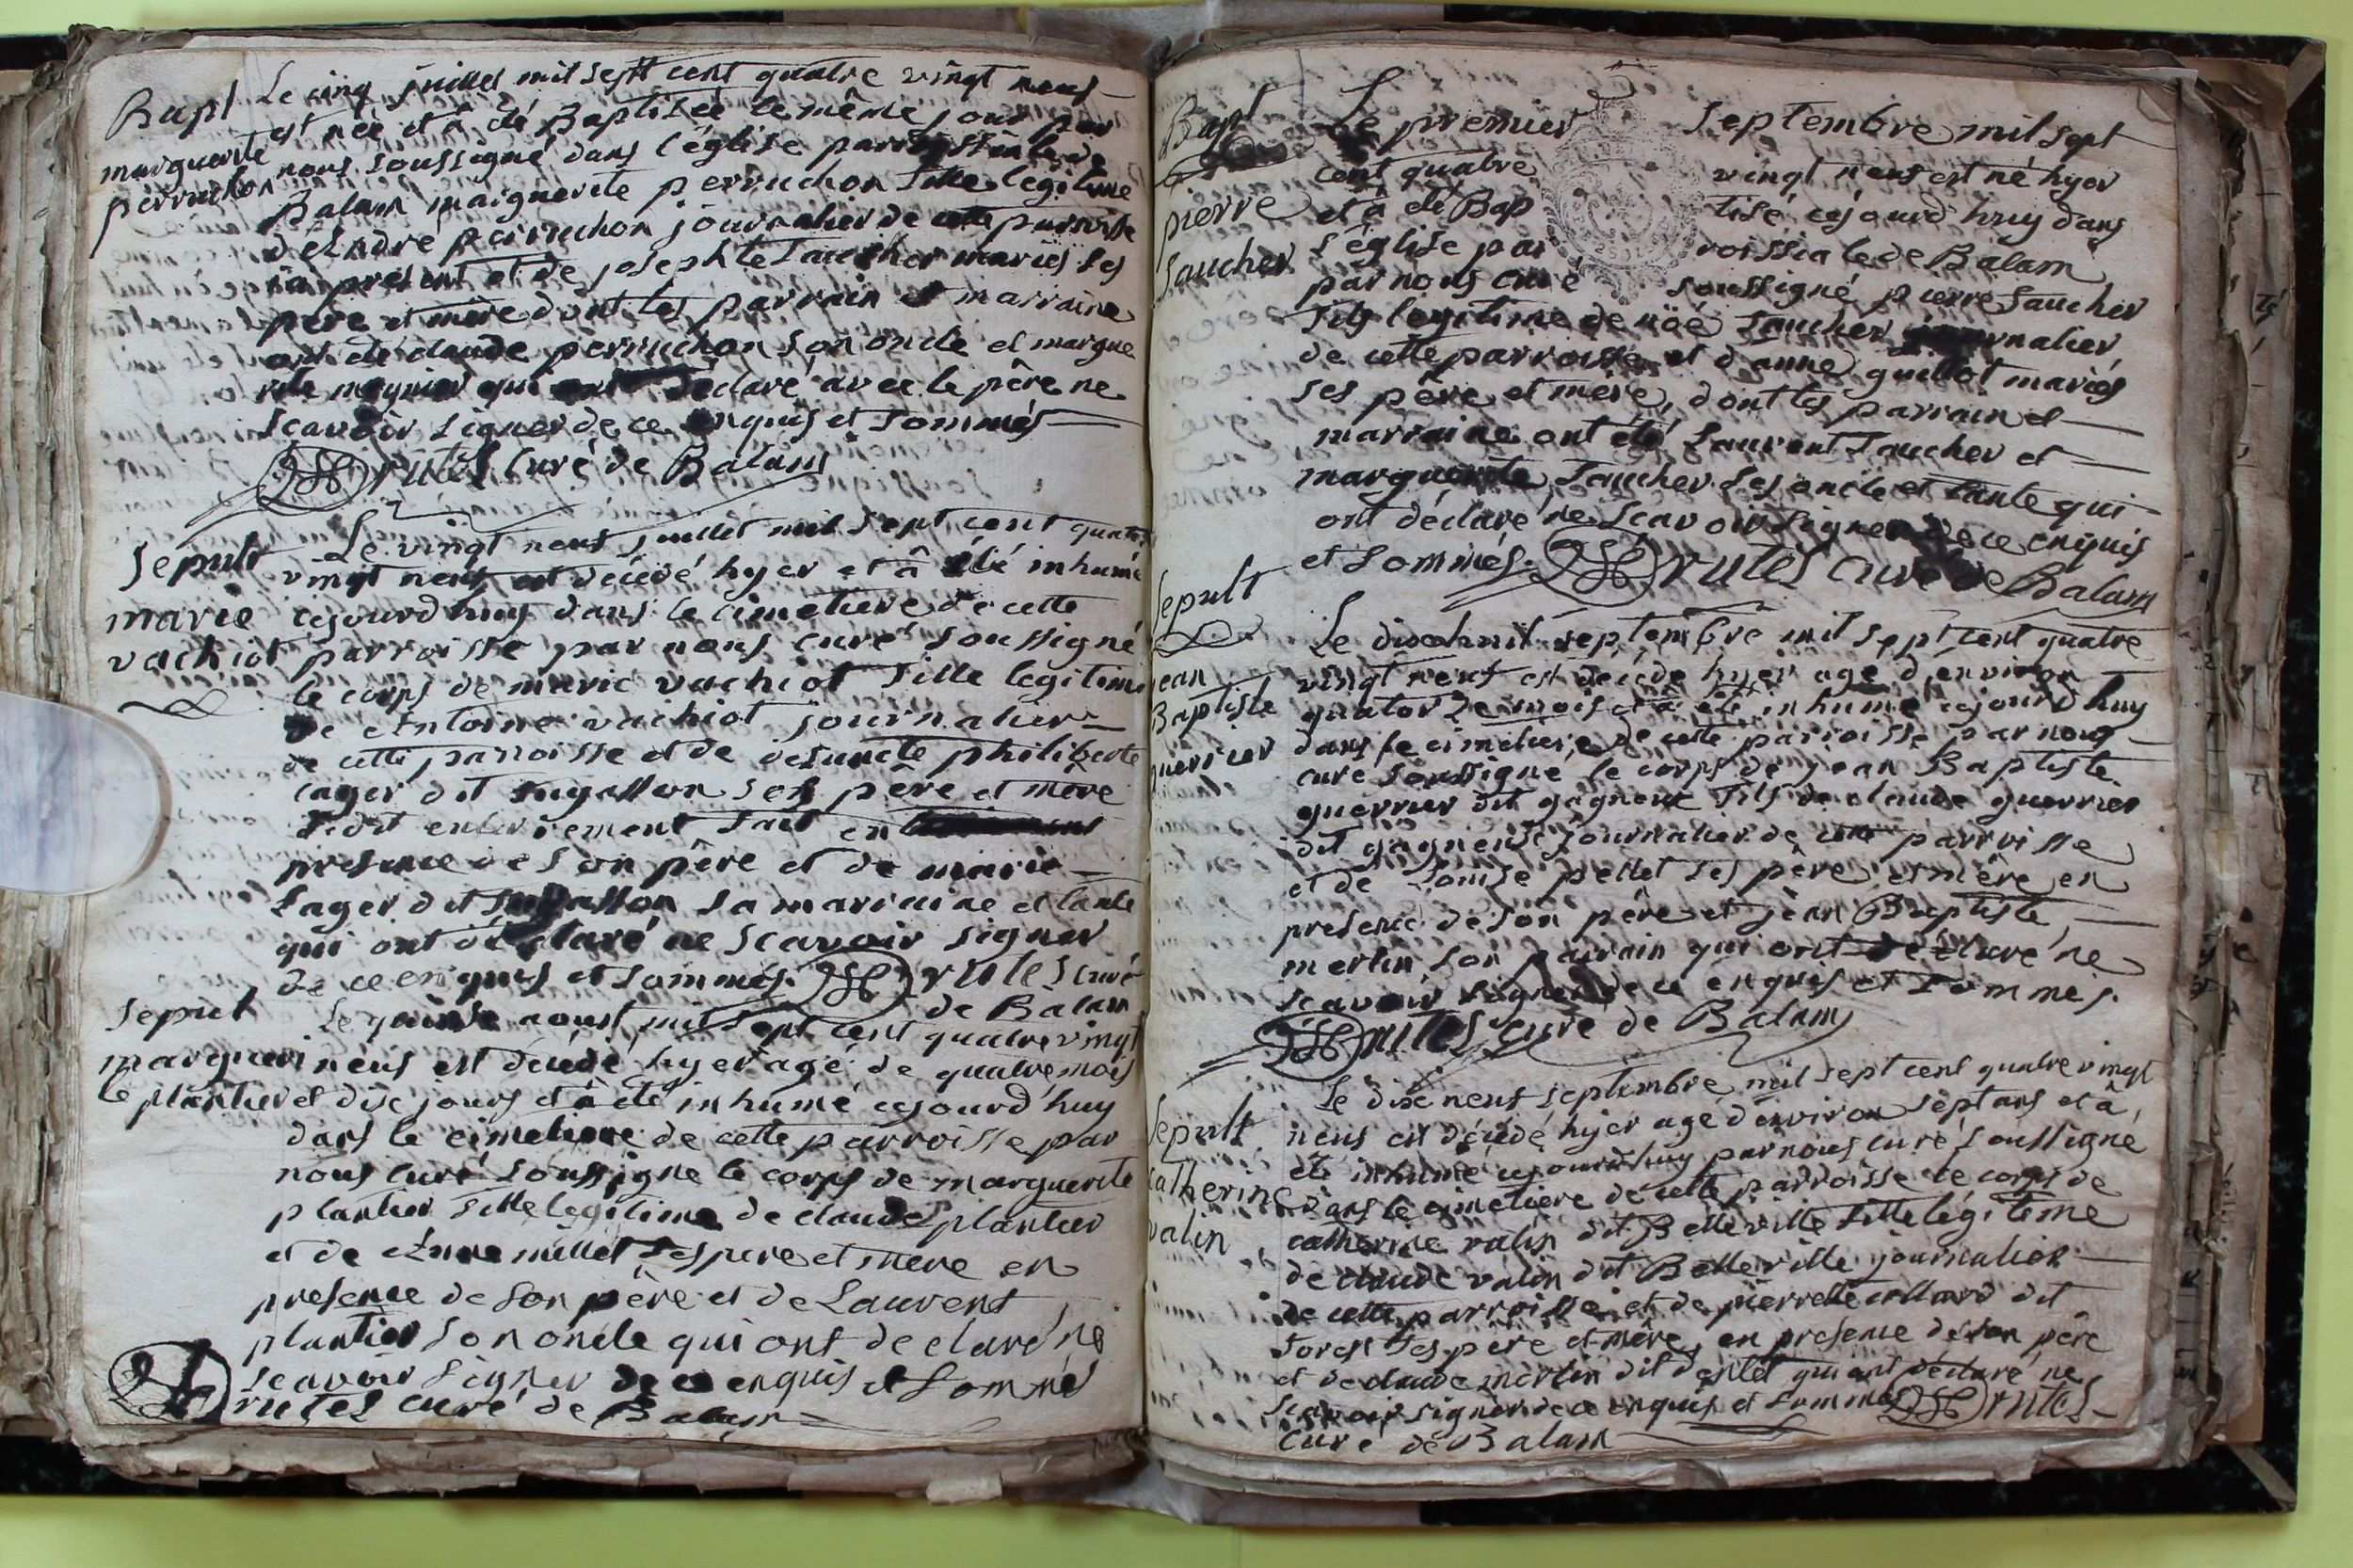 Bapt
marguerite
perruchon
Le cinq juillet mil sept cent quatre vingt neuf
est née et à été Baptisée le même jour par
nous soussigné dans l'église parroissiale de
Balam marguerite perruchon fille legitime
d'Andre perruchon journalier de cette parroisse
à présent et de josephte faucher mariés ses
père et mère dont les parrain et marraine
ont été claude perruchon son oncle et margue
rite qui ont déclaré avec le père ne
scavoir signer de ce enquis et sommés
Brutel curé de Balam
Sepult
marie
vachiot
Le vingt neuf juillet mil sept cent quatre
vingt neuf est décédé hyer et à été inhumé
cejourd'huy dans le cimetiere de cette
parroisse par nous curé soussigné
le corps de marie vachiot fille legitime
de Antoine vachiot journalier
de cette parroisse et de defuncte philiberte
cager dit ses père et mère
ledit enterrement fait en
presence de son père et de marie
cager dit sa marraine et tante
qui ont déclaré ne scavoir signer
de ce enquis et sommés. Brutel curé
de Balam
Sepult
marguerite
plantier
Le quinze aoust mil sept cent quatre vingt
neuf est décédé hyer agé de quatre mois
et dix jours et à été inhumé cejourd'huy
dans le cimetiere de cette parroisse par
nous curé soussigné le corps de marguerite
plantier fille legitime de claude plantier
et de Anne millet ses pere et mere en
presence de son père et de Laurent
plantier son oncle qui ont declaré ne
scavoir signer de ce enquis et sommés
Brutel curé de Balam
Bapt
pierre
faucher
Le premier septembre mil sept
cent quatre vingt neuf est né hyer
et à été Bap tisé cejourd'huy dans
l'église par roissiale de Balam
par nous curé soussigné pierre faucher
fils legitime de noë faucher journalier
de cette parroisse et d'anne guillot mariés
ses père et mere, dont les parrain et
marraine ont été Laurent faucher et
marguerite faucher ses oncle et tante qui
ont déclaré ne scavoir signer de ce enquis
et sommés. Brutel curé de Balam
Sepult
jean
Baptiste
guerrier
Le dixehuit septembre mil sept cent quatre
vingt neuf est décédé hyer agé d'environ
quatorze mois et à été inhumé cejourd'huy
dans le cimetiere de cette parroisse par nous
curé soussigné le corps de jean Baptiste
guerrier dit gagneux fils de claude guerrier
dit gagneux journalier de cette parroisse
et de Louise pellet ses père et mère en
presence de son père et jean Baptiste
merlin son parrain qui ont déclaré ne
scavoir signer de ce enquis et sommés.
Brutel curé de Balam
Sepult
catherine
valin
Le dixe neuf septembre mil sept cent quatre vingt
neuf est décédé hyer agé d'environ sept ans et à
été inhumé cejourd'huy par nous curé soussigné
dans le cimetiere de cette parroisse le corps de
catherine valin dit Belleville fille légitime
de claude valin dit Belleville journalier
de cette parroisse et de pierrette dit
forest ses père et mère, en presence de son père
et de claude merlin dit qui ont déclaré ne
scavoir signer de ce enquis et sommés Brutel
curé de Balam